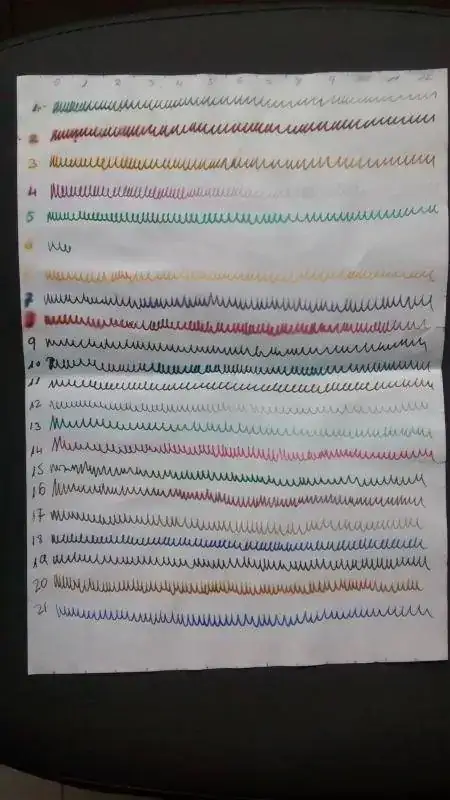 0 1 2 3 4 5 6 7 8 9 11 12
1
2
3
4
5
6
7
8
9
10
11
12
13
14
15
16
17
18
19
20
21